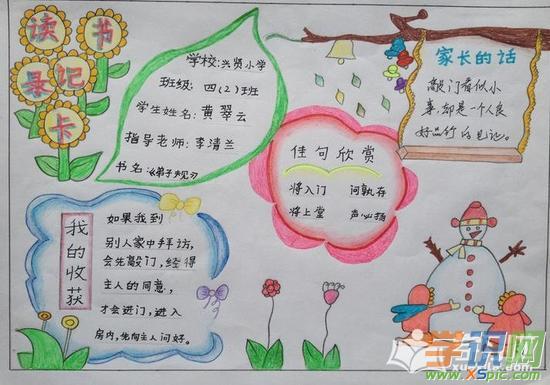 读书
录记
卡
学校:兴贤小学
班级:四(2)班
学生姓名:黄翠云
指导老师:李清兰
书名:《弟子规》
家长的话
敲门看似小
事,却是一个人良
好品行的见证。
佳句欣赏
将入门 问孰存
将上堂 声必扬
我的收获
如果我到
别人家中拜访,
会先敲门,经得
主人的同意,
才会进门,进入
房内,先向主人问好。
学识网
www.XSpic.com